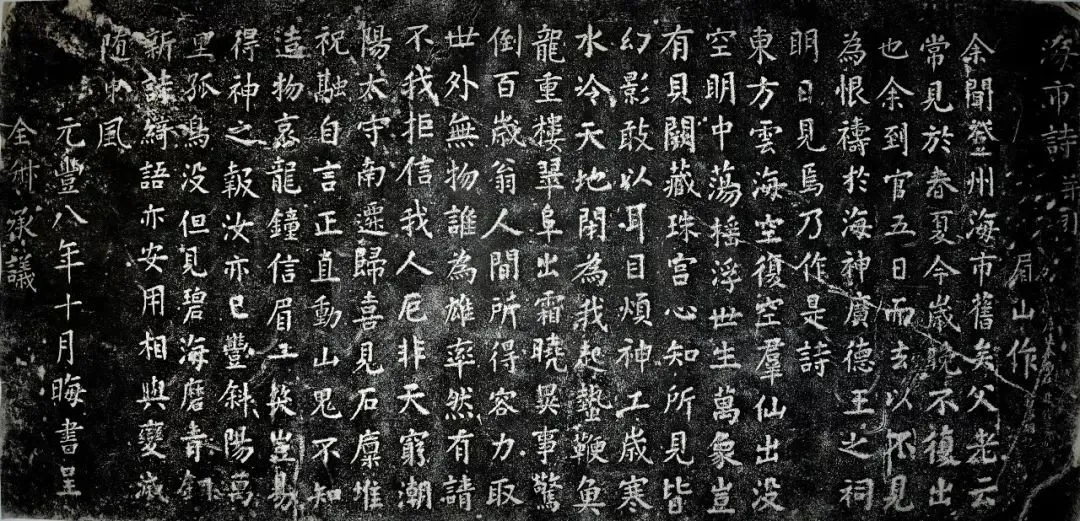 海市詩 并引
眉山作
余聞登州海市舊矣父老云
常見於春夏今歲晚不復出
也余到官五日而去以不見
為恨禱於海神廣德王之祠
明日見焉乃作是詩
東方雲海空復空羣仙出没
空明中蕩搖浮世生萬象豈
有貝闕藏珠宫心知所見皆
幻影敢以耳目煩神工歲寒
水冷天地閉為我起蟄鞭魚
龍重樓翠阜出霜曉異事驚
倒百歲翁人間所得容力取
世外無物誰為雄率然有請
不我拒信我人厄非天窮潮
陽太守南遷歸喜見石廩堆
祝融自言正直動山鬼不知
造物哀龍鐘信眉一笑豈易
得神之報汝亦已豐斜陽萬
里孤鳥没但見碧海磨青銅
新詩綺語亦安用相與變滅
随東風
元豐八年十月晦書呈
全叔承議